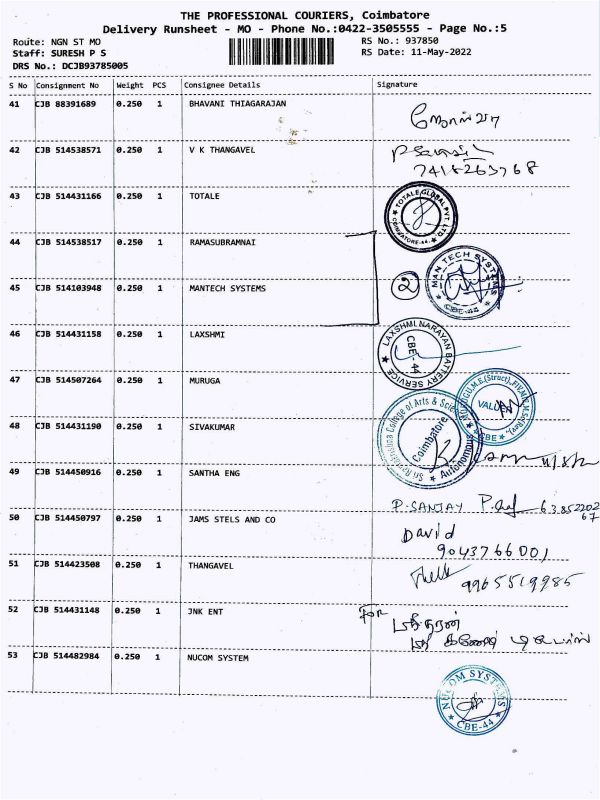 THE PROFESSIONAL COURIERS, Coimbatore
Delivery Runsheet - MO - Phone No.:0422-3505555 - Page No.:5
Route: NGN ST MO
RS No.: 937850
Staff: SURESH P S
RS Date: 11-May-2022
DRS No.: DCJB93785005
S No Consignment No Weight PCS Consignee Details Signature
41 CJB 88391689 0.250 1 BHAVANI THIAGARAJAN
42 CJB 514538571 0.250 1 V K THANGAVEL
7418263768
43 CJB 514431166 0.250 1 TOTALE
TOTALE GLOBAL PVT. LTD. COIMBATORE-44.
44 CJB 514538517 0.250 1 RAMASUBRAMNAI
2
MAN TECH SYSTEMS CBE-44
45 CJB 514103948 0.250 1 MANTECH SYSTEMS
46 CJB 514431158 0.250 1 LAXSHMI
LAXSHMI NARAYAN BATTERY SERVICE CBE-44
47 CJB 514507264 0.250 1 MURUGA
VALUER CBE
48 CJB 514431190 0.250 1 SIVAKUMAR
College of Arts & Coimbatore Autonomous
49 CJB 514450916 0.250 1 SANTHA ENG
P. SANJAY
50 CJB 514450797 0.250 1 JAMS STELS AND CO
David
9043766001
51 CJB 514423508 0.250 1 THANGAVEL
9965519985
52 CJB 514431148 0.250 1 JNK ENT
For
53 CJB 514482984 0.250 1 NUCOM SYSTEM
NUCOM SYSTEMS CBE-44